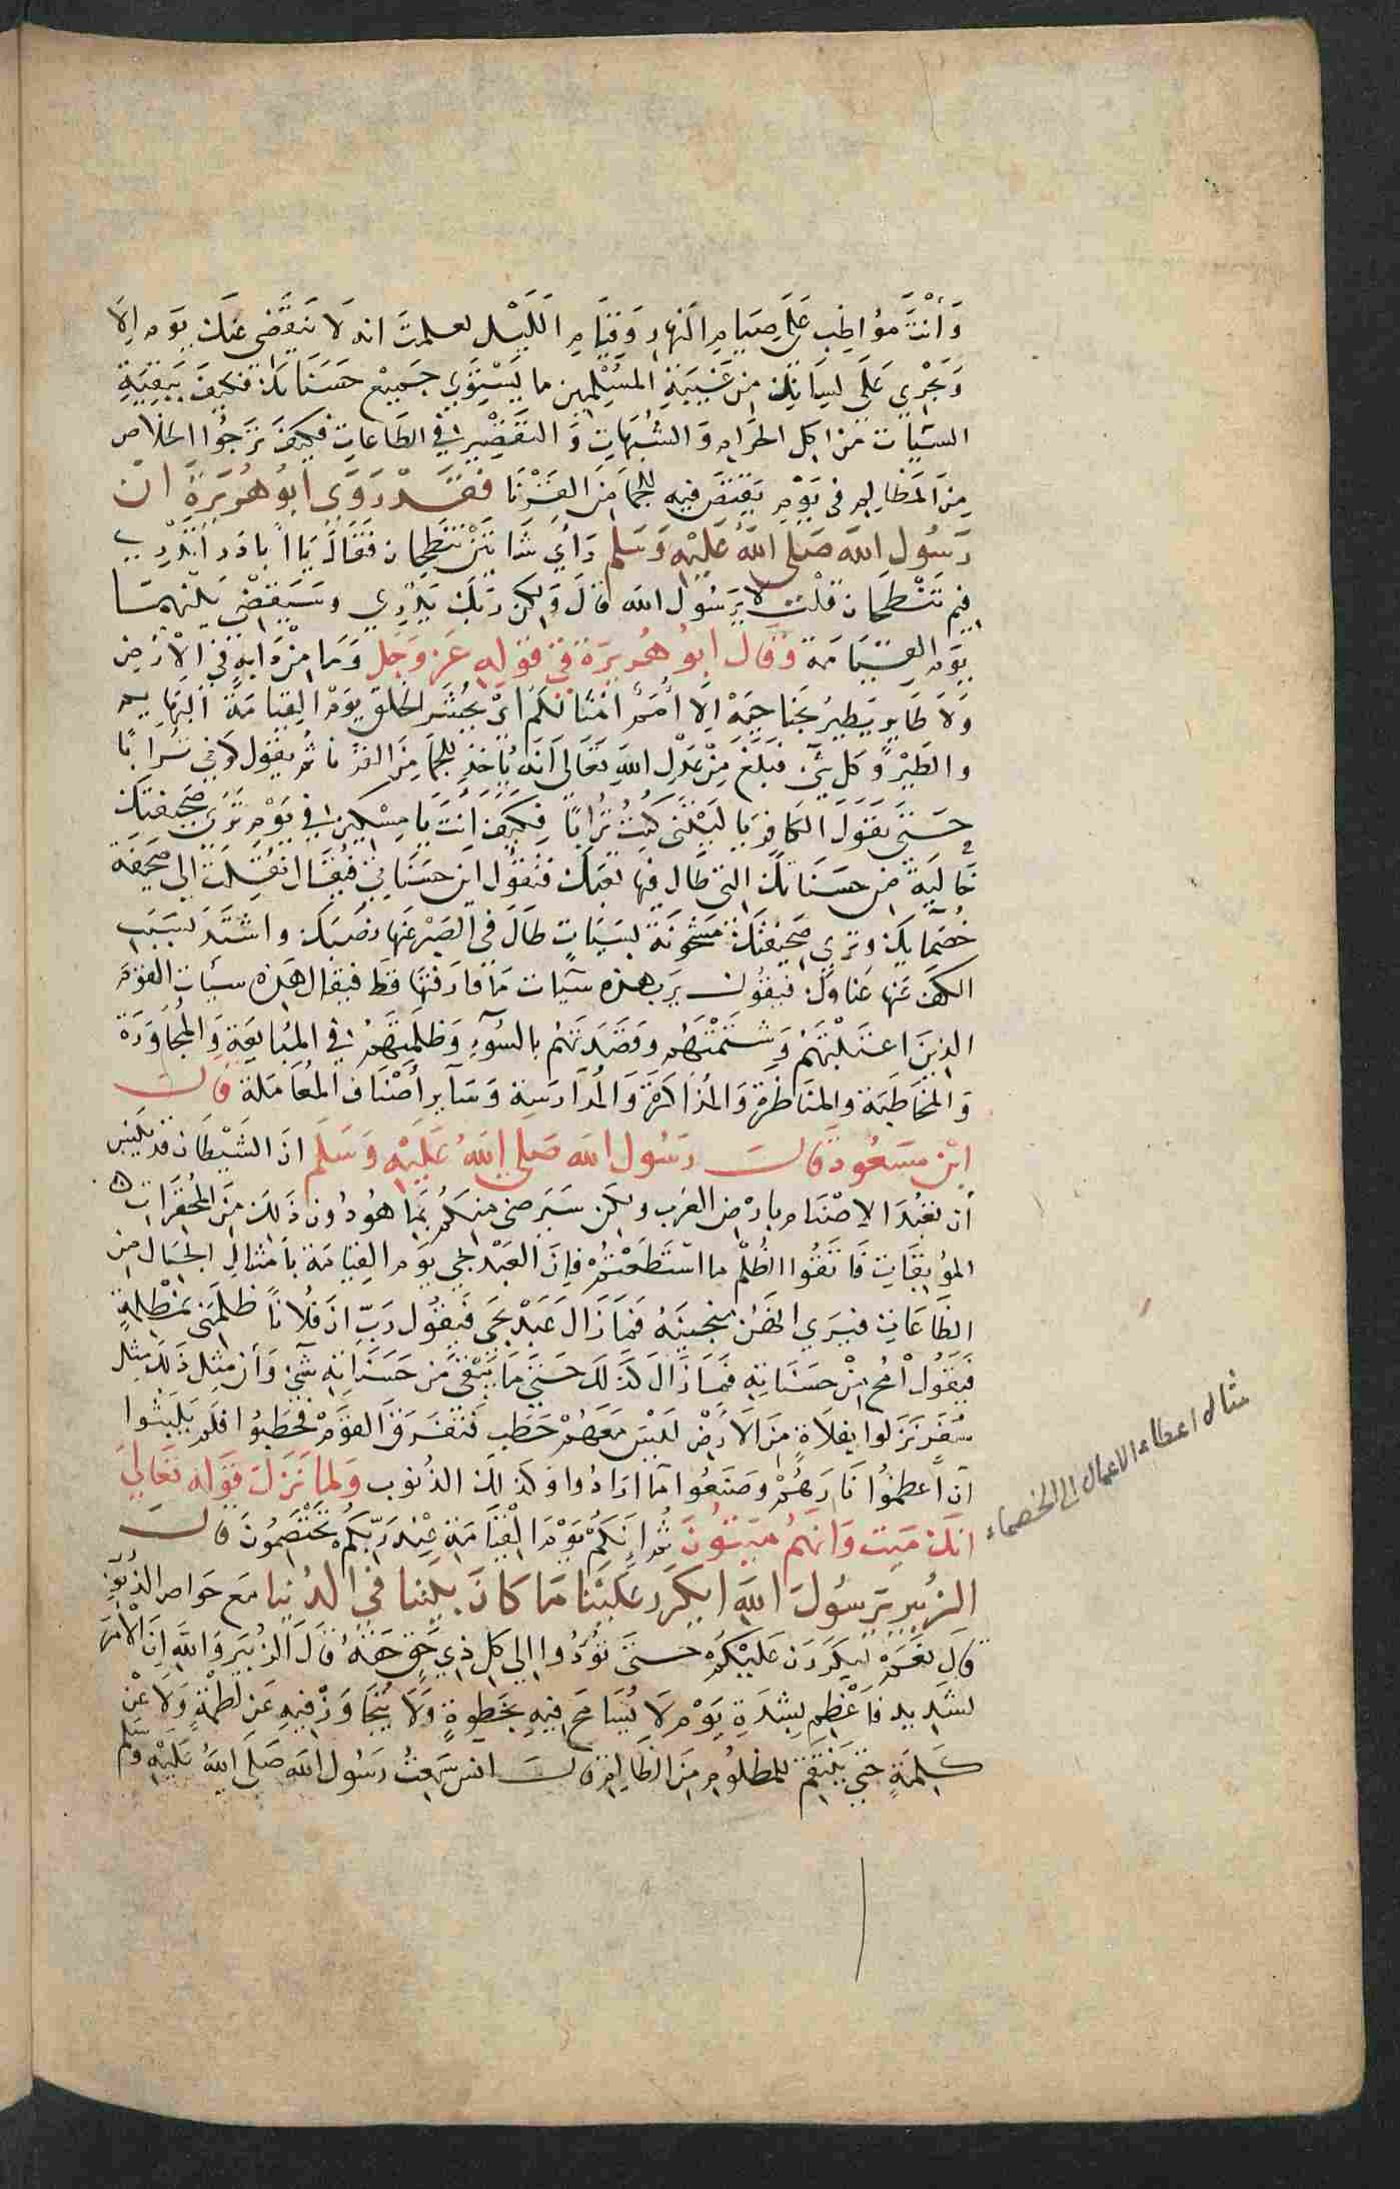 وَأَنْتَ مُواظِب عَلَى صِيَامِ النَهارِ وَقِيَامِ اللَيْل لعلمتَ انه لَا يَنقَضى عَنكَ يَوم اِلاَ
وَيَجْرِي عَلَى لِسَانِكَ مِن غَيْبَةِ المُسْلِمين ما يَسْتَوْفِي جَميع حَسَنَاتِكَ فَكيفَ بِبَقِيَةِ
السَيِئات مِن اكل الحَرامِ وَالشُبَهَاتِ وَالتَقصِيرِ فى الطَاعاتِ فكيفَ تَرجُوا الخلاص
مِنَ المَظالِمِ فى يَوْمٍ يقتصّ فيهِ للجمَّا مِنَ القَرْنَا فَقَدْ رَوَى اَبُو هُرَيرَةَ ان
رَسُول اللَه صَلى اللَهُ عَلَيْه وَسَلم رَاَي شَاتَيْن تَنْتَطِحان فَقَالَ يَا اَباذَر اَتَدْرِي
فِيم تَنْتَطِحَان قلْت لا يَرَسُول اللَه قَالَ وَلَكِن رَبّكَ يَدْرِي وسَيَقْضِي بَيْنَهمَا
يَوم القِيَامَة وَقَالَ ابُو هُرَيرَةَ في قَوْلِه عَز وَجَل وَمَا مِنْ دَابَةٍ فِي الأرْضِ
وَلَا طَايرٍ يَطِيرُ بجَناحَيْه اِلَا أُمَمٌ اَمْثَالُكُم انّهُ يُحْشَر الخلق يَوْم القِيَامَة البَهَايم
والطَيْرُ وَكل شَيْ فَيَبْلغ مِنْ عَدْلِ اللَهِ تَعَالى اَنَه يَاخُذ للجمَّا مِنَ القَرْنا ثُم يقول كُونِى تُرَابًا
حَتَى يَقُولَ الكَافِر يَا لَيْتَنى كُنْتُ تُرابًا فكيفَ اَنتَ يَا مِسْكين فى يَوْمٍ تَرَى صَحيفتكَ
خَاليَةً مِن حَسَناتٍ التى طَال فيها تعَبكَ فتقول اين حَسَناتى فيُقال نُقِلت الى صَحِيفة
خُصَمَايكَ وترى صَحِيفتَكَ مَشْحُونَةً بسَيَاتٍ طَالَ فى الصَبْر عَنها نصَبكَ واشتَدَ بسَبَبِ
الكف عَنها عَناوكَ فَيقُول يَرَب هذه سَيِئات مَا قارَفتُها قط فيقال هَذه سيئات القوم
الذِينَ اغتَبْتَهُمْ وَشَتَمْتَهم وقصَدتَهُم بالسُوءِ وَظَلَمْتَهُمْ فى المُبَايَعَةِ وَالمُجَاوَرَة
وَالمخَاطَبَة والمنَاظَرَة وَالمذاكَرَة وَالمُدَارَسَة وَسَآيرِ أَصْنَاف المُعَامَلَةِ قَالَ
ابْن مَسْعُود قَالَ رَسُول اللَه صَلى اللَهُ عَلَيْه وَسَلَم انَ الشَيْطَان قد يَئِسَ
أن تعْبُدَ الاصْنَام بارْضِ العَرب ولكِن سَيَرضى منكُم بِمَا هُو دُون ذَلِكَ مِنَ المحُقَرَات
المُوبِقَات فَاتَّقُوا الظُلْم ما استَطَعْتُمْ فَإِنَّ العَبْد يجي يَوم القِيَامَة بِاَمثَالِ الجبَال مِن
الطَاعَاتِ فيَرَي انهُنَّ سَيُنْجِينَهُ فَمَا زَالَ عَبْد يجي فَيَقُول رَبّ ان فُلانًا ظَلَمَنى بمَظْلمةٍ
فَيَقُول اُمحُ مِنْ حَسَنَاتِهِ فَمَا زَالَ كَذَلكَ حَتىَ مَا يَبْقَى مِن حَسَنَاتِهِ شَيْ وَأن مِثل ذَلكَ مِثل
سَفَرٍ نَزَلوا بفَلَاةٍ مِنَ الاَرْضِ لَيْسَ مَعَهُمْ حَطب فَتَفَرَقَ القوْمُ فحَطبُوا فلَم يَلبَثُوا
اَن أعظمُوا نَارَهُمْ وصَنَعُوا مَا ارَادُوا وَكذلكَ الذُنوب وَلَمَا نَزَلَ قَوْله تَعَالىَ
انكَ مَيِت وَانهُم مَيتُونَ ثُم اِنَكُمْ يَوْم القِيَامَةِ عِنْدَ رَبِكُمْ تَخْتَصِمُونَ قَالَ
الزُبَير يَرَسُولَ اللَه ايُكَرَر عَلَيْنَا مَا كَانَ بَيْنَنا فى الدُنيا مَع خَواص الذُنُوبِ
قَالَ نَعَمْ لَيُكَرَرَن عَلَيْكُمْ حَتىَ تُؤَدُوا الى كل ذِي حَقٍ حَقَهُ قَالَ الزُبَير وَاللَه اِنَ الاَمْرَ
لشَدِيد فَأعْظِم بِشدَةِ يَوْمٍ لَا يُسَامَح فيهِ بخَطوةٍ وَلَا يُتجَاوَز فِيهِ عَن لَطْمَةٍ وَلَا عَنْ
كَلِمَةٍ حَتى يَنْتَقم للمظلُوم مِنَ الظَالِم قَالَ انس سَمِعتُ رَسُول اللَه صَلَى اللَهُ عَلَيْه وَسَلم
مثال اعطاء الاعمال الى الخصماء